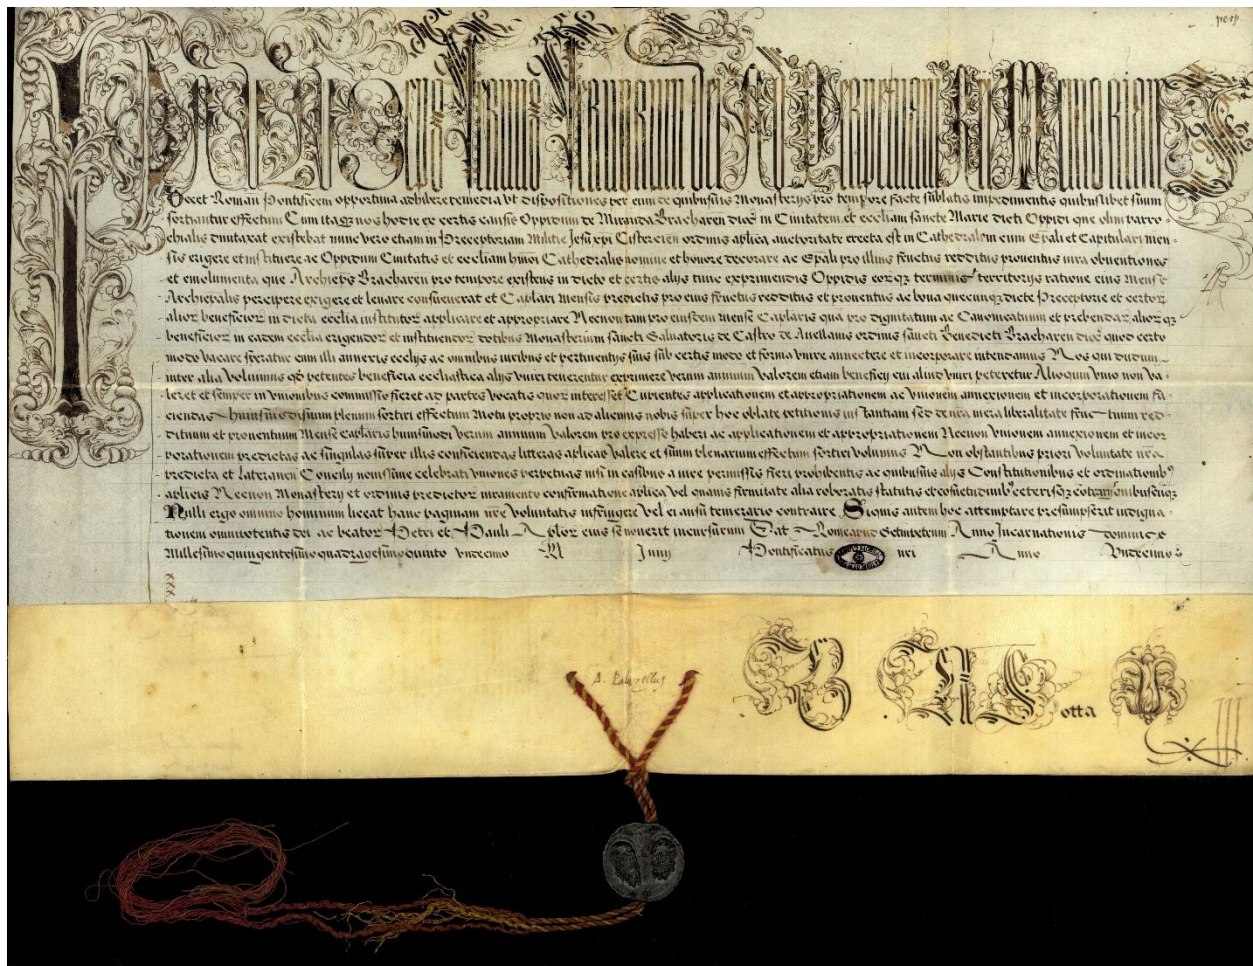 perp
PAULUS Episcopus Servus Servorum Dei Ad Perpetuam Rei Memoriam
Decet Roman Pontificem opportuna adhibere remedia ut dispositiones per eum de quibusuis Monasterijs pro tempore facte sublatis impedimentis quibuslibet suum
sortiantur effectum Cum itaq; nos hodie ex certis causis Oppidum de Miranda Bracharen dioc in Ciuitatem et eccliam sancte Marie dicti Oppidi que olim parro-
chialis dumtaxat existebat nunc vero etiam in Preceptoriam Militie Jesu xpi Cistercien ordinis aplica auctoritate erecta est in Cathedralem cum Epali et Capitulari men-
sis erigere et instituere ac Oppidum Ciuitatis et eccliam hmoi Cathedralis nomine et honore decorare ac Epali pro illius fructus redditus prouentus iura obuentiones
et emolumenta que Archieps Bracharen pro tempore existens in dicto et certis alijs tunc exprimendis Oppidis eorq; terminis territorijs ratione eius Mense
Archiepalis percipere exigere et leuare consueuerat et Caplari Mensis predictis pro eius fructus redditus et prouentus ac bona quecunq; dicte Preceptorie et certor
alior beneficior in dicta ecclia institutor applicare et appropriare Necnon tam pro eiusdem mense Caplaris qua pro dignitatum ac Canonicatuum et prebendar alior q;
beneficior in eadem ecclia erigendor et instituendor dotibus Monasterium sancti Saluatoris de Castro de Auellanis ordinis sancti Benedicti Bracharen dioc quod certo
modo vacare speratur cum illi annexis ecclijs ac omnibus iuribus et pertinentijs suis sub certis modo et forma vnire annectere et incorporare intendamus Nos qui dudum
inter alia voluimus qd petentes beneficia ecclesiastica alijs vniri tenerentur exprimere verum annuum valorem etiam beneficij cui aliud vniri peteretur Alioquin vnio non va-
leret et semper in vnionibus commissio fieret ad partes vocatis quor interesset Cupientes applicationem et appropriationem ac vnionem annexionem et incorporationem fa-
ciendas huiusmodi suum plenum sortiri effectum Motu proprio non ad alicuius nobis super hoc oblate petitionis instantiam sed de nra mera liberalitate fructuum red-
dituum et prouentuum Mense Caplaris huiusmodi verum annuum valorem pro expresso haberi ac applicationem et appropriationem Necnon vnionem annexionem et incor
porationem predictas ac singulas super illis conficiendas litteras aplicas valere et suum plenarium effectum sortiri volumus Non obstantibus priori voluntate nra
predicta et Lateranen Concilij nouissime celebrati vniones perpetuas nisi in casibus a iure permissis fieri prohibentis ac quibusuis alijs Constitutionibus et ordinationib9
aplicis Necnon Monasterij et ordinis predictor iuramento confirmatione aplica vel quauis firmitate alia roboratis statutis et consuetudinib9 ceterisq; contrarijs quibuscunq;
Nulli ergo omnino hominum liceat hanc paginam nre voluntatis infringere vel ei ausu temerario contraire Siquis autem hoc attemptare presumpserit indigna-
tionem omnipotentis dei ac beator Petri et Pauli Aplor eius se nouerit incursurum Dat Rome apud Sctmpetrum Anno Incarnationis dominice
Millesimo quingentesimo quadragesimo quinto vndecimo Kl Junij Pontificatus nri Anno vndecimo
xxx
otta